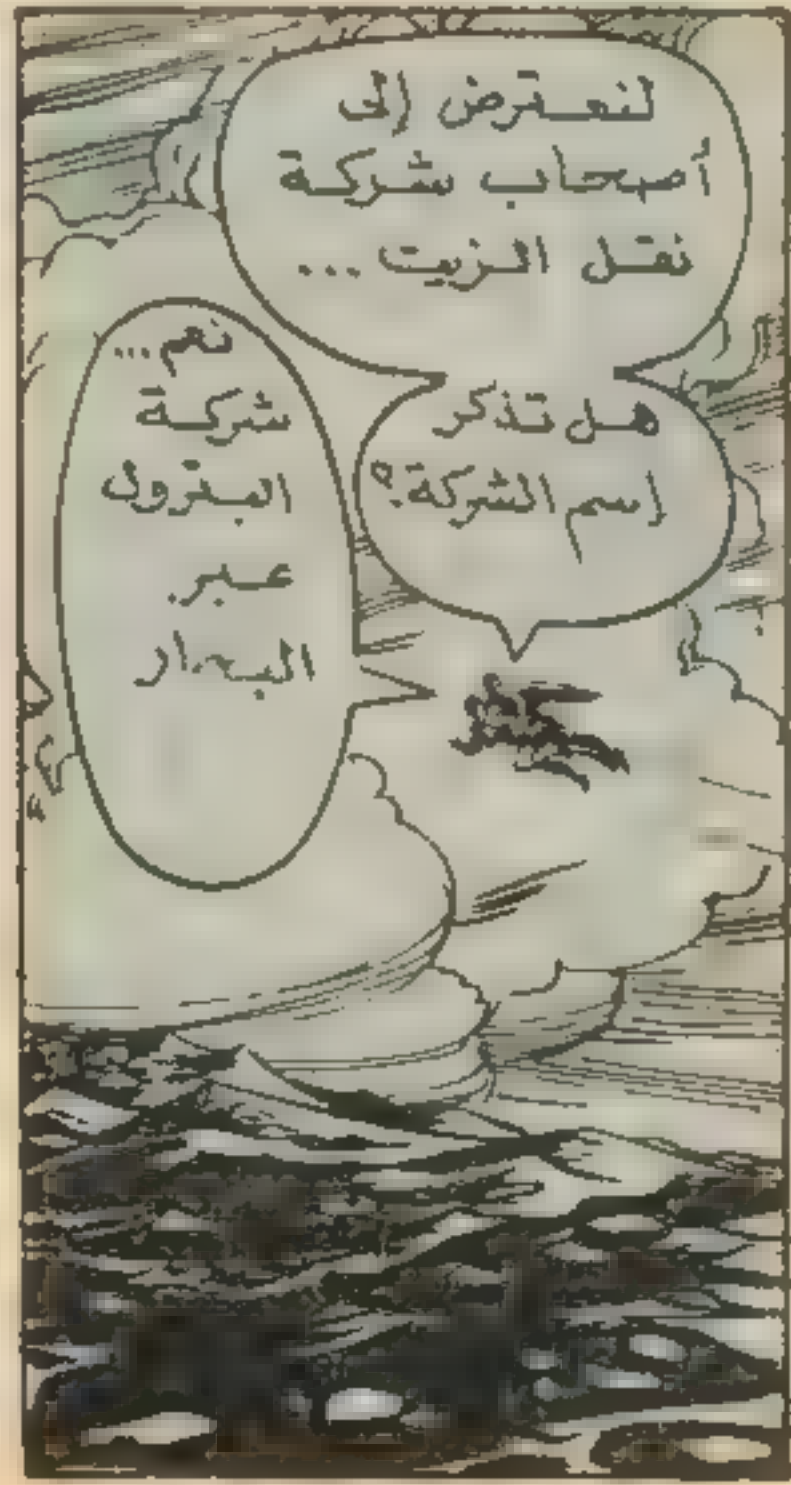 لنعترض إلى
أصحاب شركة
نقل الزيت ...
هل تذكر
إسم الشركة؟
نعم ...
شركة
البترول
عبر
البحار